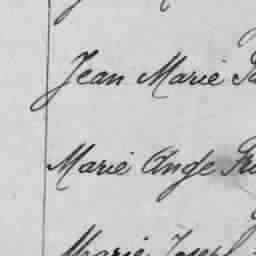 Jean Marie
Marie Ange
Marie Joseph